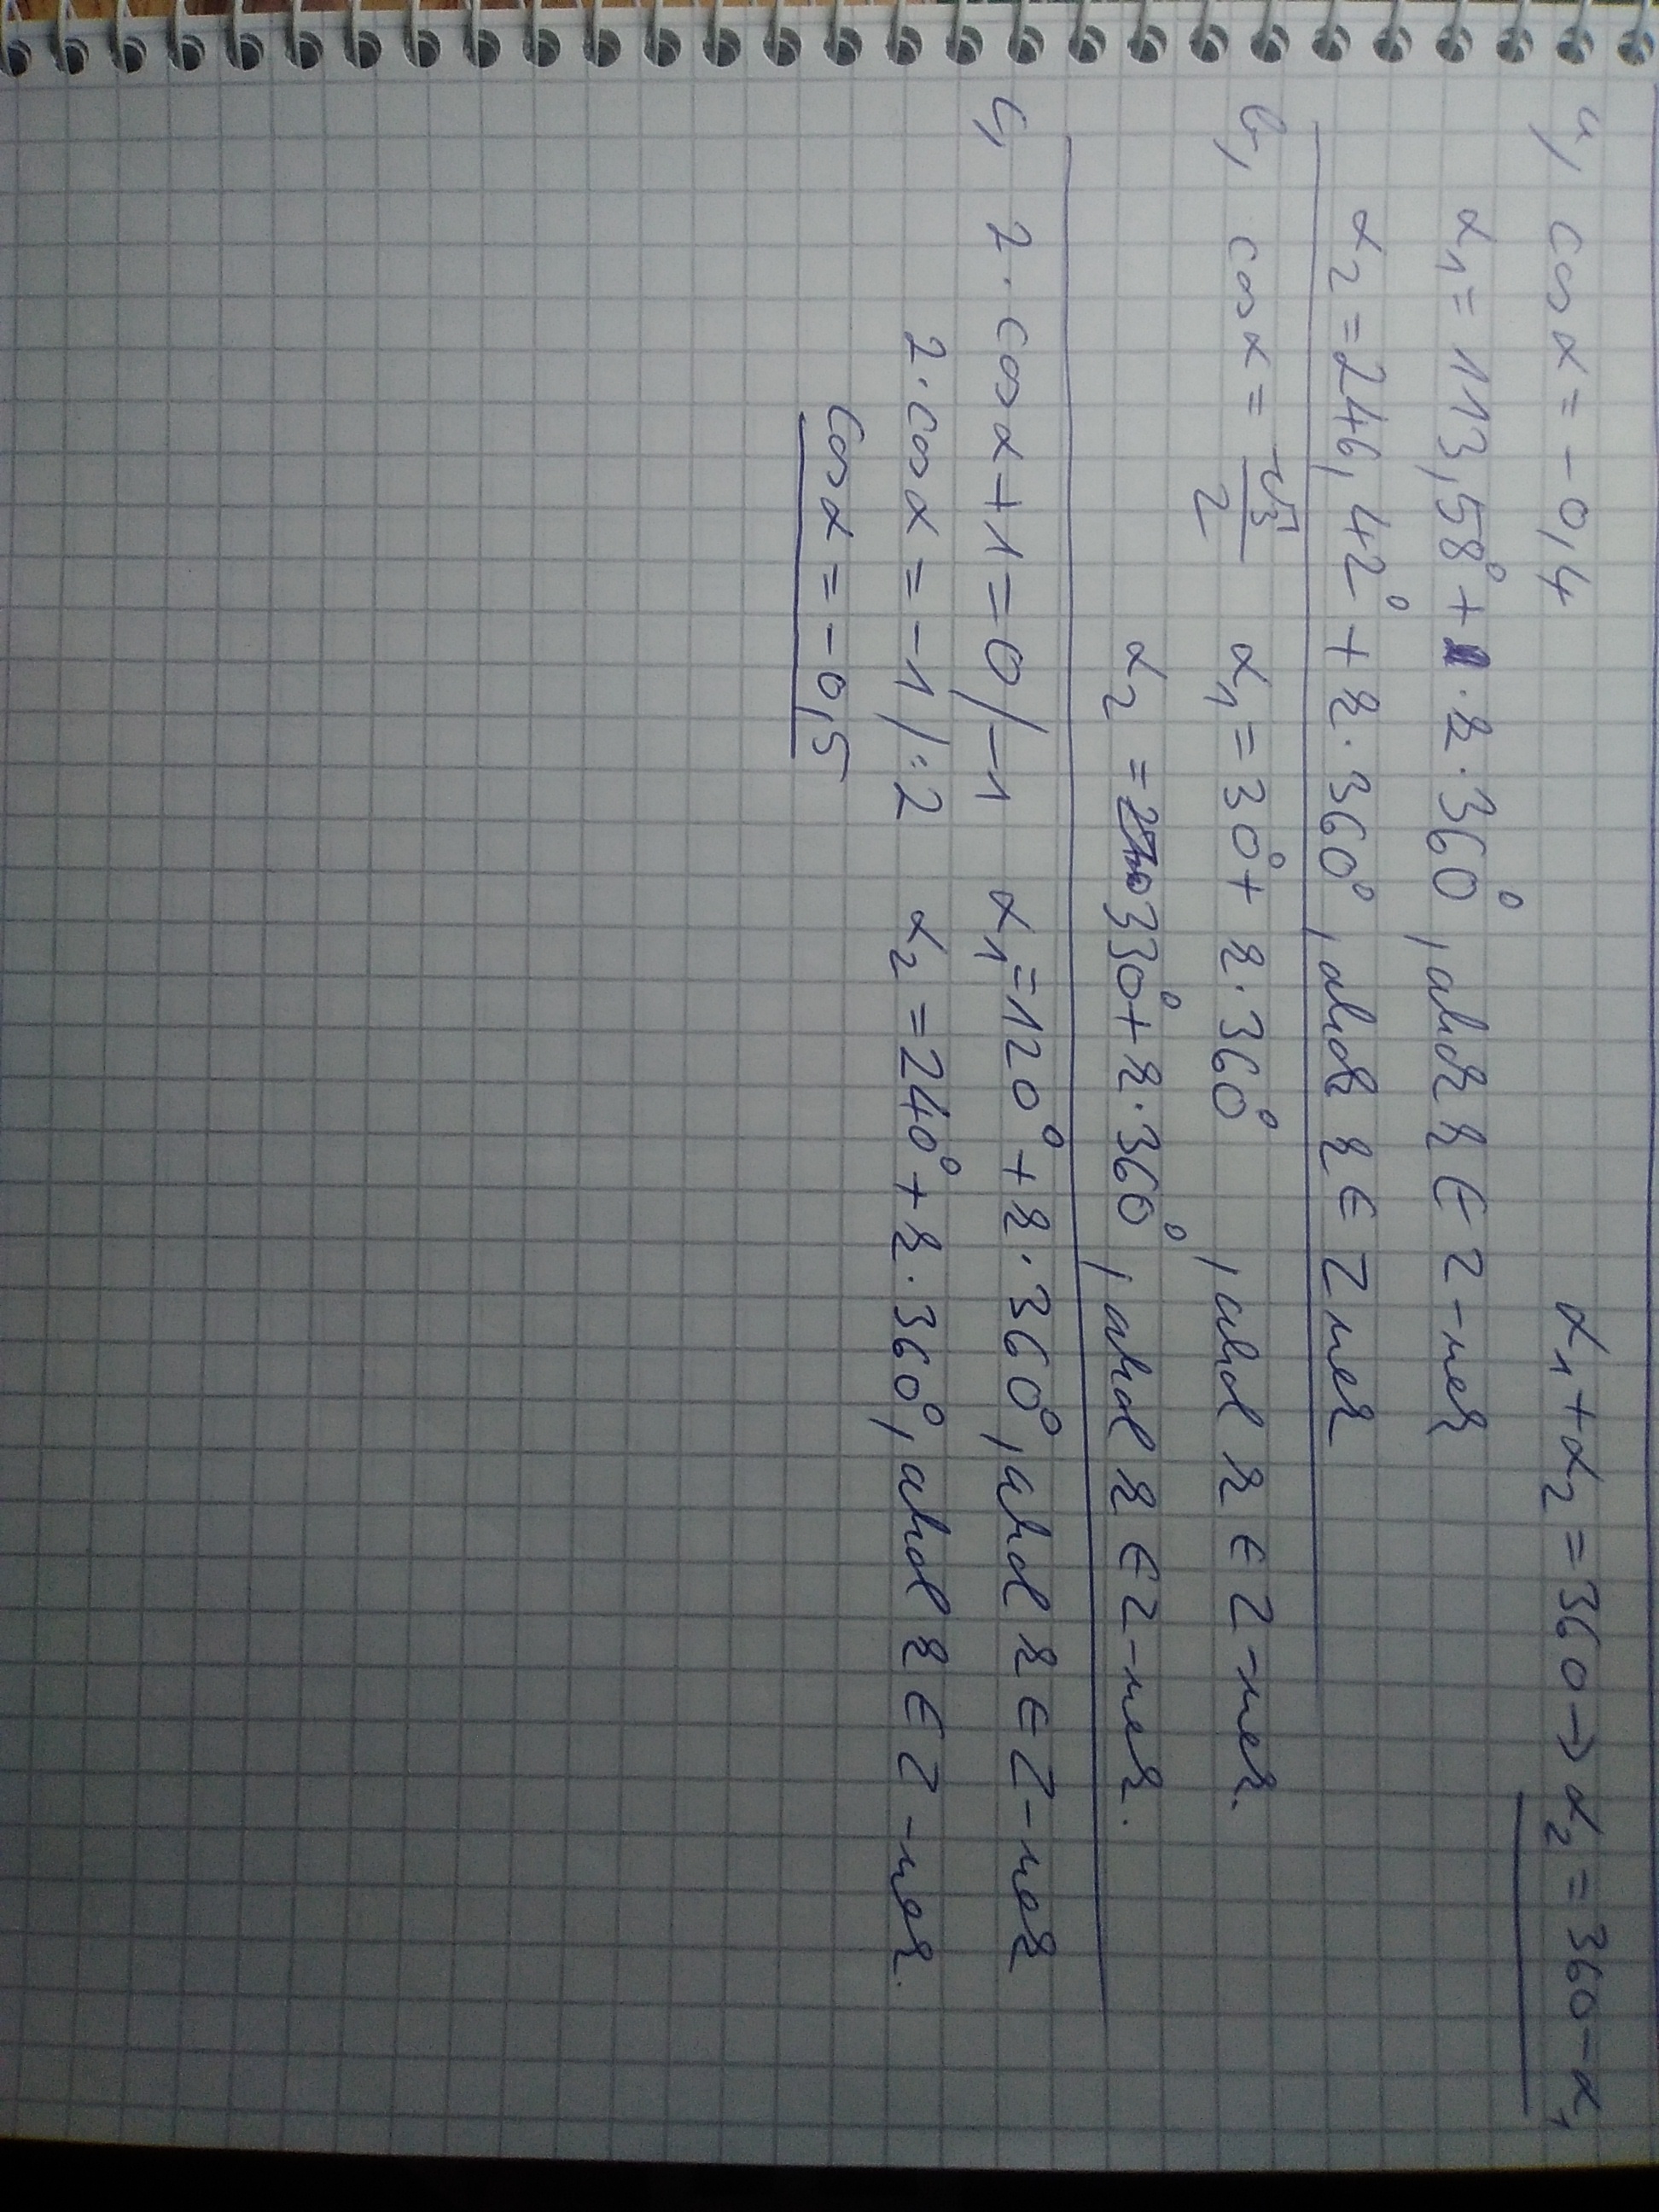 a, cos α = -0,4 α₁ + α₂ = 360 → α₂ = 360 - α₁
α₁ = 113,58° + k · 360°, ahol k ∈ Z-nek
α₂ = 246,42° + k · 360°, ahol k ∈ Z nek
b, cos α = √3/2 α₁ = 30° + k · 360°, ahol k ∈ Z-nek.
α₂ = 330° + k · 360°, ahol k ∈ Z-nek.
c, 2 · cos α + 1 = 0 /-1 α₁ = 120° + k · 360°, ahol k ∈ Z-nek
2 · cos α = -1 /:2 α₂ = 240° + k · 360°, ahol k ∈ Z-nek.
cos α = -0,5